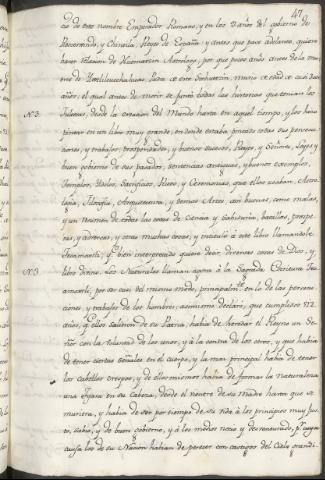 47
cio de este nombre Emperador Romano, y en los 2 años del gobierno de
Recesvindo, y Chinsila, Reyes de España: y antes que pase adelante, quiero
hacer relacion de Huematzin Astrologo, por que pocos años antes de la muerte
de Ixtlilcuechahuac Padre de este Señor, murio de edad de casi 300
Nº3. años, el qual antes de morir se juntó todas las historias que tenian los
Tultecas, desde la creacion del Mundo hasta en aquel tiempo, y las hizo
pintar en un libro muy grande, en donde estaba pintado todas sus persecu-
ciones, y trabajos, prosperidades, y buenos sucesos, Reyes, y Señores, Leyes y
buen gobierno de sus pasados, sentencias antiguas, y buenos exemplos,
Templos, Idolos, Sacrificios, Ritos, y Ceremonias, que ellos usaban, Astro-
logia, Filosofia, Arquitectura, y demas Artes, asi buenas, como malas,
y un resumen de todas las cosas de Ciencia y Sabiduria, batallas, prospe-
ras, y adversas, y otras muchas cosas; y intituló á este libro llamandole
Teoamoxtli, que bien interpretado quiere decir, diversas cosas de Dios, y
Nº3. libro divino. Los Naturales llaman agora á la Sagrada Escritura Teo-
amoxtli, por ser casi del mismo modo, principalmente en lo de las persecu-
ciones, y trabajos de los hombres; asimismo declaró, que cumplidos 512
años, que ellos salieron de su Patria, habia de heredar el Reyno un Se-
ñor con la voluntad de los unos, y á la contra de los otros, y que habia
de tener ciertas señales en el cuerpo, y la mas principal habia de tener
los cabellos crespos, y de ellos mismos habia de formar la naturaleza
una en su Cabeza, desde el vientre de su Madre hasta que se
muriera, y habia de ser por tiempo de su vida á los principios muy jus-
to, sabio, y de buen gobierno, y á los medios necio y desventurado, por cuya
causa los de su Nacion habian de perecer con castigos del Cielo grandi-